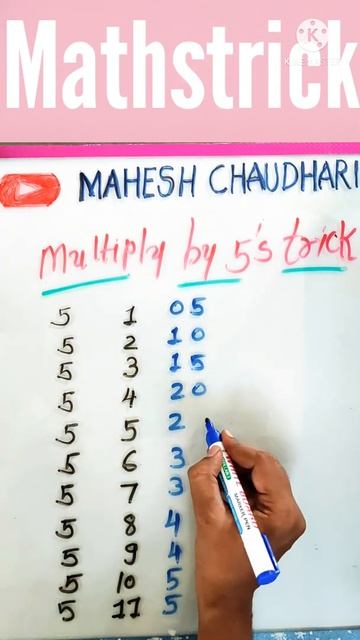 Mathstrick
KINEMASTER
MAHESH CHAUDHARI
Multiply by 5's trick
5 1 05
5 2 10
5 3 15
5 4 20
5 5 2
5 6 3
5 7 3
5 8 4
5 9 4
5 10 5
5 11 5